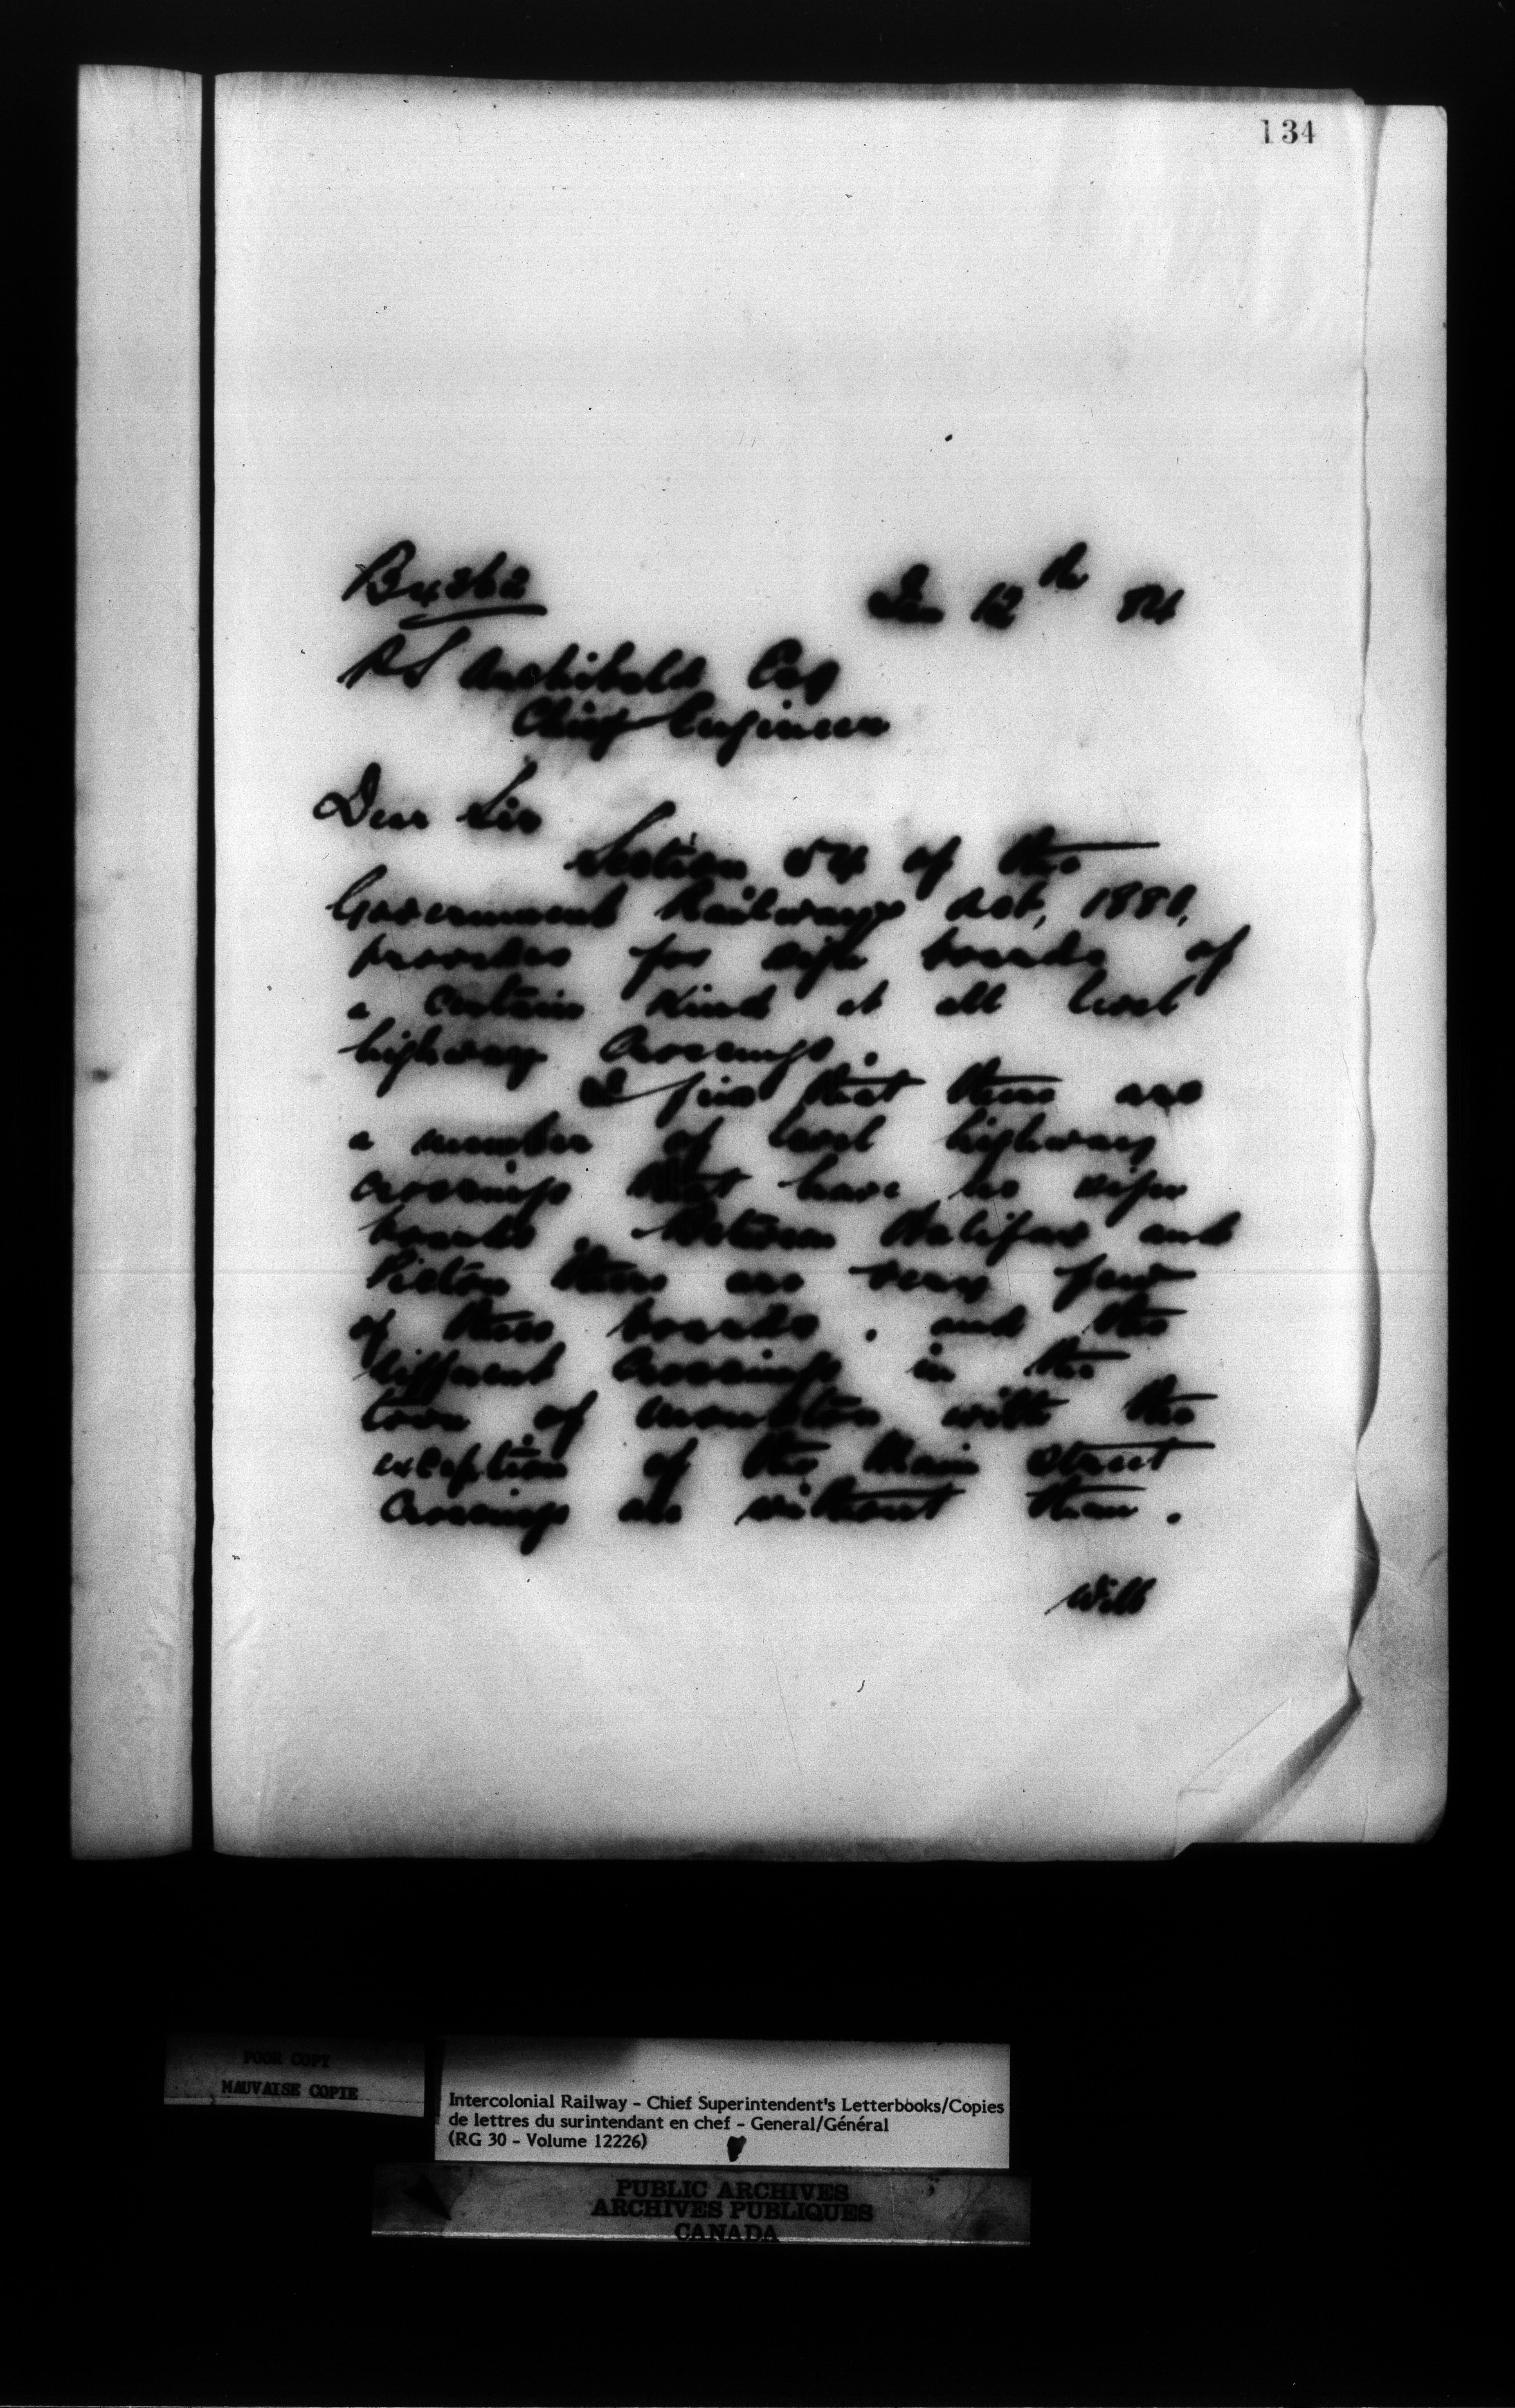 134
B4862
Jan 12th 84
P S Archibald Esq
Chief Engineer
Dear Sir
Section 54 of the
Government Railways Act, 1881,
provides for sign boards of
a certain kind at all level
highway crossings.
I find that there are
a number of level highway
crossings that have no sign
boards. Between Halifax and
Pictou there are very few
of these boards. and the
different crossings in the
town of Moncton with the
exception of the Main Street
Crossing are without them.
Will
POOR COPY
MAUVAISE COPIE
Intercolonial Railway - Chief Superintendent's Letterbooks/Copies
de lettres du surintendant en chef - General/Général
(RG 30 - Volume 12226)
PUBLIC ARCHIVES
ARCHIVES PUBLIQUES
CANADA